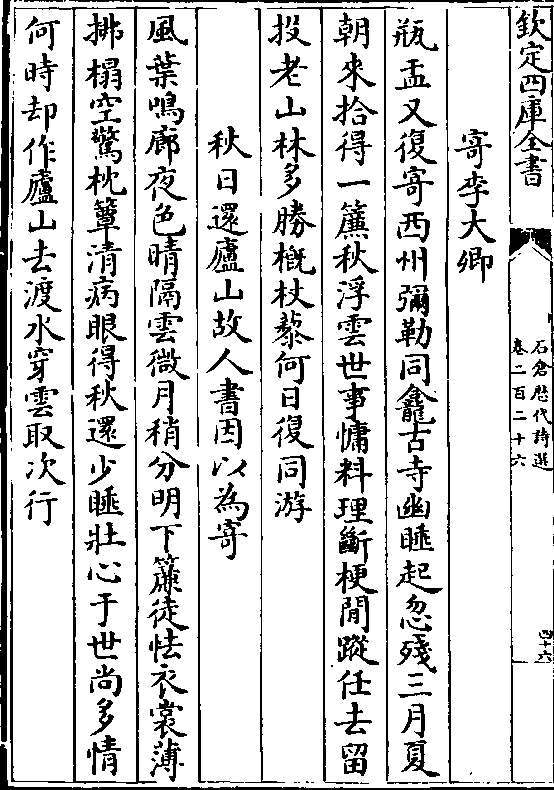 欽定四庫全書
石倉歷代詩選
卷二百二十六
四十六
寄李大卿
瓶盂又復寄西州彌勒同龕古寺幽睡起忽殘三月夏
朝來拾得一簾秋浮雲世事慵料理斷梗閒蹤任去留
投老山林多勝槪杖藜何日復同游
秋日還廬山故人書因以為寄
風葉鳴廊夜色晴隔雲微月稍分明下簾徒怯衣裳薄
拂榻空驚枕簟清病眼得秋還少睡壯心于世尚多情
何時却作廬山去渡水穿雲取次行